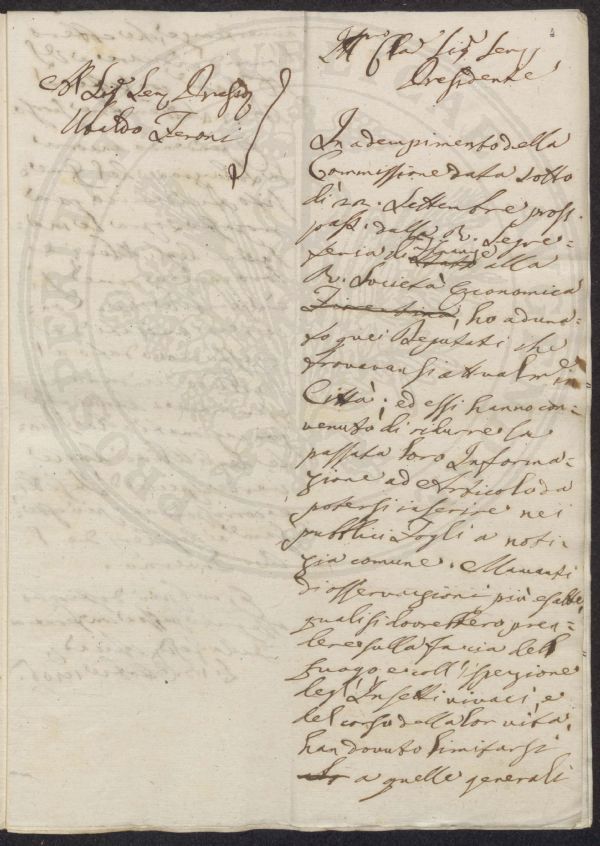 Al Sig.e Sen. Presid.
Ubaldo Feroni
Ill.mo Sig.e Sen.
Presidente
In adempimento della
Commissione data sotto
di 22. Settembre pross.
pass. dalla R. Segre=
teria di Finanze alla
R. Società Economica
Fiorentina, ho aduna=
to quei Deputati che
trovavansi attualm.e in
Città; ed essi hanno con
venuto di ridurre la
passata loro Informa=
zione ad Articolo da
potersi inserire nei
pubblici Fogli a noti=
zia comune. Mancanti
di osservazioni più esatte,
quali si dovrebbero pren=
dere sulla faccia del
Luogo e coll'ispezione
degl'Insetti vivaci, e
del corso della lor vita,
han dovuto limitarsi
a quelle generali